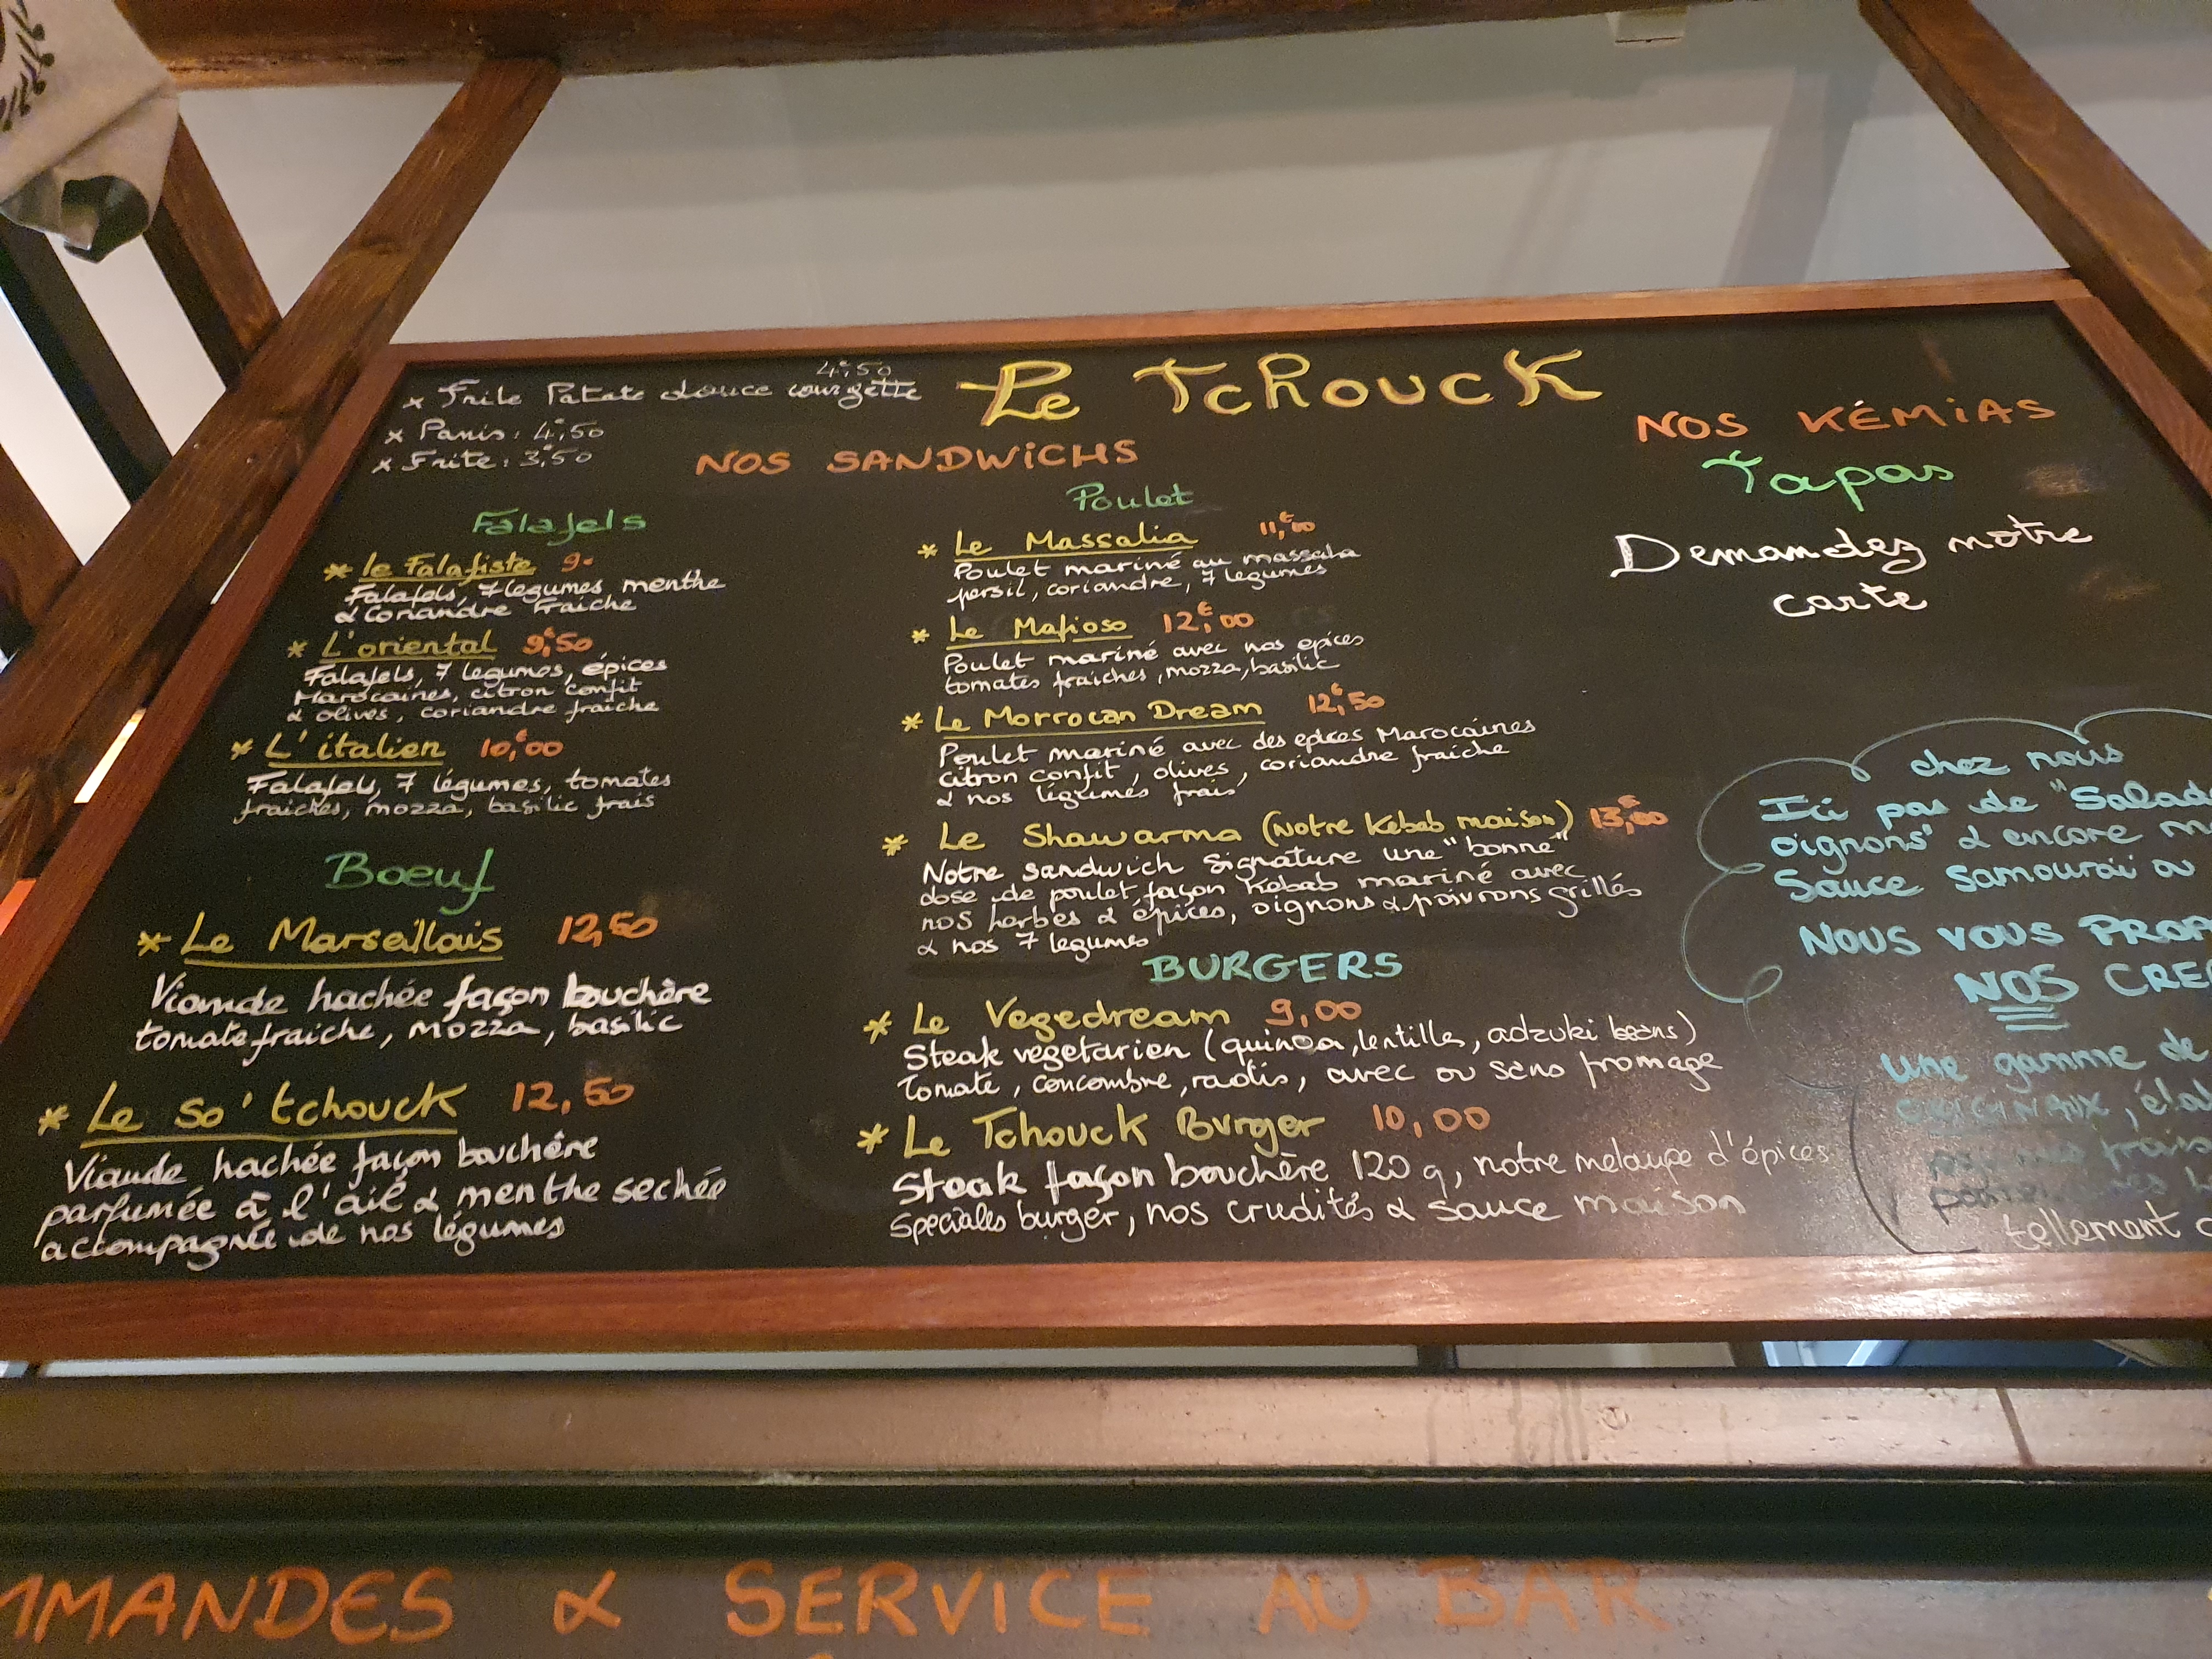 4€,50
x Frite Patate douce courgette
x Panis: 4€,50
x Frite: 3€,50
Le Tchouck
NOS SANDWICHS
Falafels
* le Falafiste 9€
Falafels, 7 legumes menthe
& Coriandre Fraiche
* L'oriental 9€,50
Falafels, 7 legumes, épices
Marocaines, citron confit
& olives, coriandre fraiche
* L'italien 10€,00
Falafels, 7 légumes, tomates
fraiches, mozza, basilic frais
Boeuf
* Le Marseillais 12,50
Viande hachée façon bouchère
tomate fraiche, mozza, basilic
* Le so'tchouck 12,50
Viande hachée façon bouchère
parfumée à l'ail & menthe sechée
accompagnée de nos légumes
Poulet
* Le Massalia 11€,00
Poulet mariné au massala
persil, coriandre, 7 legumes
* Le Mafioso 12€,00
Poulet mariné avec nos epices
tomates fraiches, mozza, basilic
* Le Morrocan Dream 12€,50
Poulet mariné avec des epices Marocaines
citron confit, olives, coriandre fraiche
& nos légumes frais
* Le Shawarma (Notre Kebab maison) 13€,00
Notre sandwich signature une "bonne"
dose de poulet façon Kebab mariné avec
nos herbes & épices, oignons & poivrons grillés
& nos 7 legumes
BURGERS
* Le Vegedream 9,00
Steak vegetarien (quinoa, lentilles, adzuki beans)
Tomate, concombre, radis, avec ou sans fromage
* Le Tchouck Burger 10,00
Steak façon bouchère 120 g, notre melange d'épices
speciales burger, nos crudités & sauce maison
NOS KÉMIAS
Tapas
Demandez notre
carte
chez nous
Ici pas de "Salad
oignons" & encore m
Sauce Samouraï ou
NOUS VOUS PROP
NOS CRE
Une gamme de
ORIGINAUX, éla
frais
tellement
MMANDES & SERVICE AU BAR